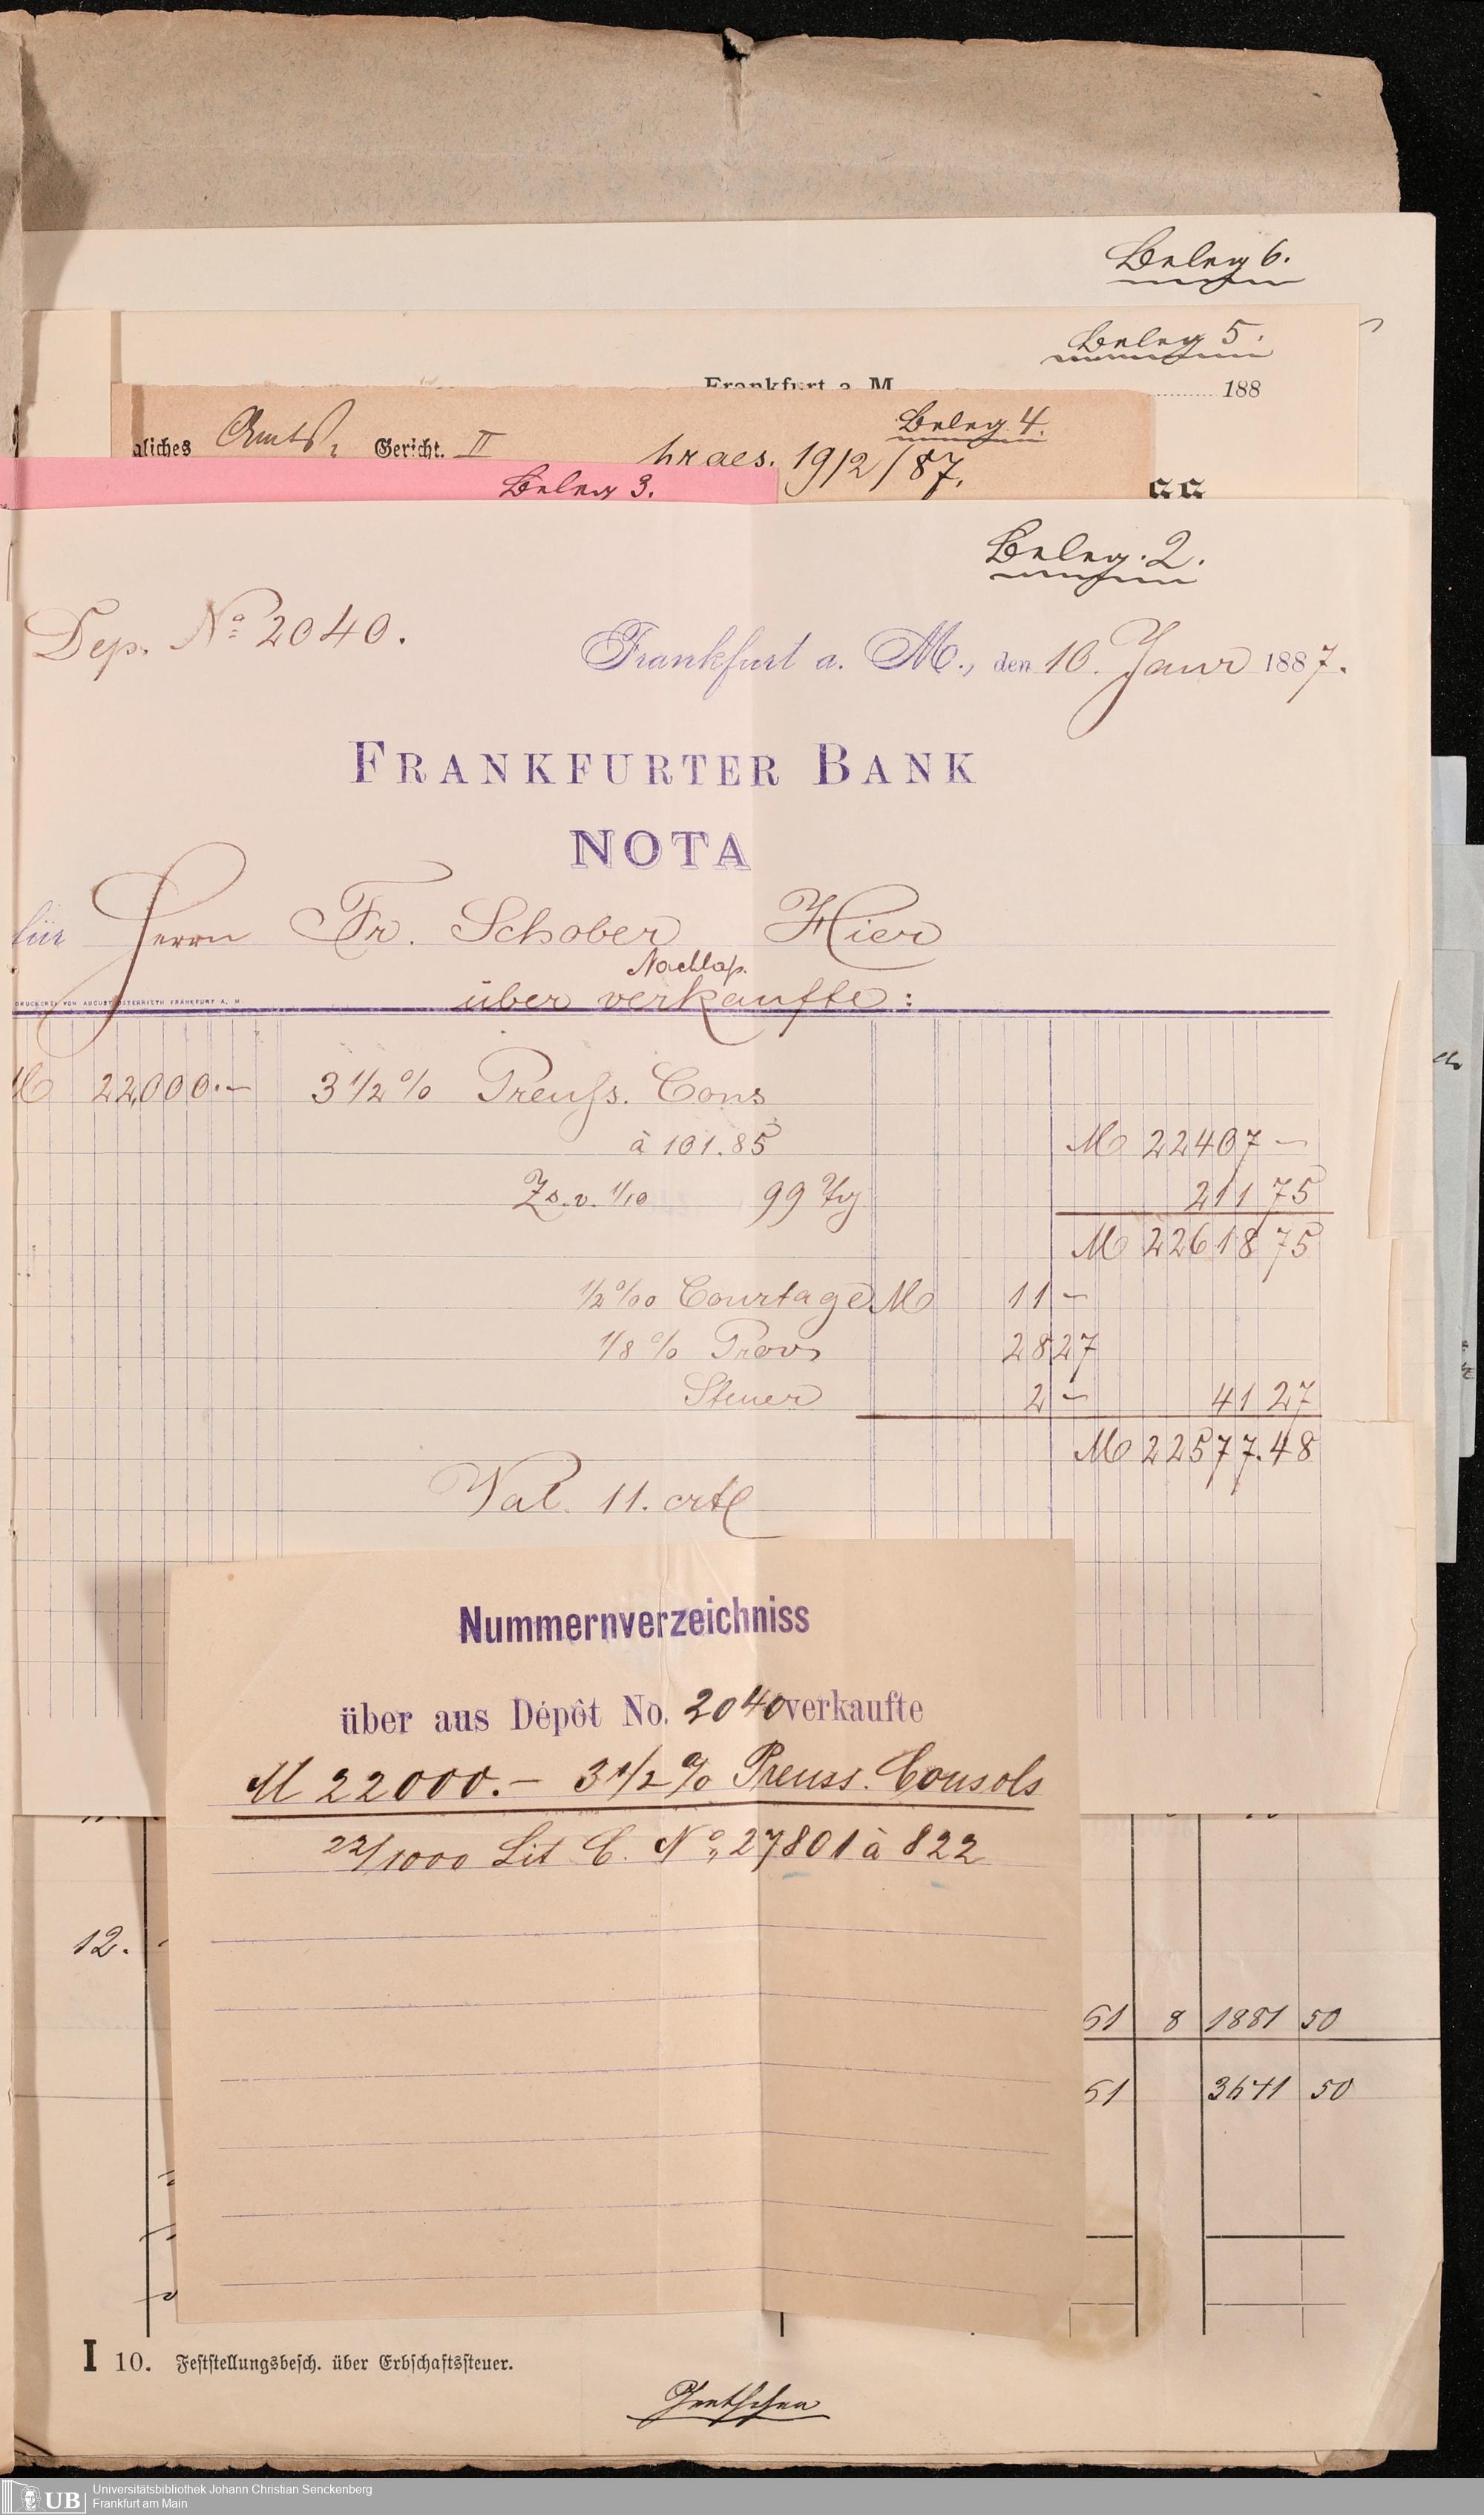 Beleg 6.
Beleg 5.
Frankfurt a. M.
188
Beleg 4.
gliches Amts Gericht. II
praes. 19/2/87.
Beleg 3.
Beleg. 2.
Dep. No 2040.
Frankfurt a. M., den 10. Janr 1887.
FRANKFURTER BANK
NOTA
für Herrn Fr. Schober Hier
Nachlaß.
über verkaufte:
DRUCKEREI VON AUGUST OSTERRIETH FRANKFURT A. M.
M 22,000.– 3 1/2 % Preuß. Cons
à 101.85 M 22407 –
Zs. v. 1/10 99 Tg 211 75
M 22618 75
1/2 ‰ Courtage M 11 –
1/8 % Prov 28 27
Steuer 2 – 41 27
M 22577.48
Val. 11. crt
Nummernverzeichniss
über aus Dépôt No. 2040 verkaufte
M 22000.– 3 1/2 % Preuss. Consols
22/1000 Lit C. No, 27801 à 822
12.
61 8 1881 50
61 3641 50
I 10. Feststellungsbesch. über Erbschaftssteuer.
UB
Universitätsbibliothek Johann Christian Senckenberg
Frankfurt am Main